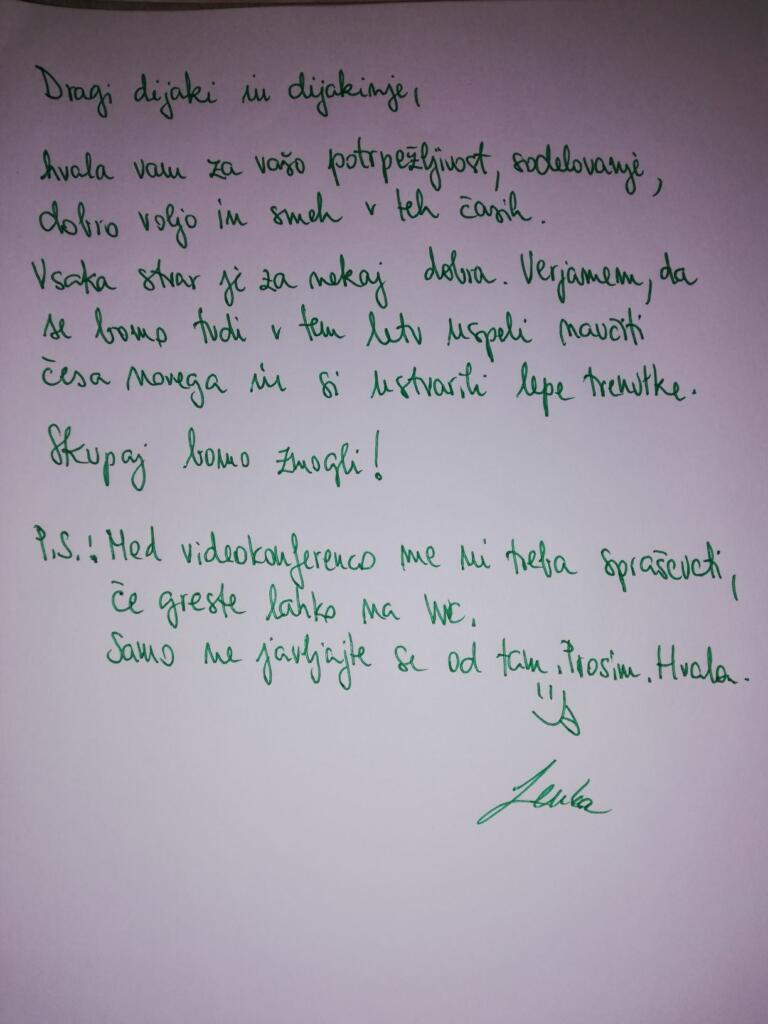 Dragi dijaki in dijakinje,
hvala vam za vašo potrpežljivost, sodelovanje,
dobro voljo in smeh v teh časih.
Vsaka stvar je za nekaj dobra. Verjamem, da
se bomo tudi v tem letu uspeli naučiti
česa novega in si ustvarili lepe trenutke.
Skupaj bomo zmogli!
P.S.! Med videokonferenco me ni treba spraševati,
če greste lahko na WC.
Samo ne javljajte se od tam. Prosim. Hvala.
Lenka